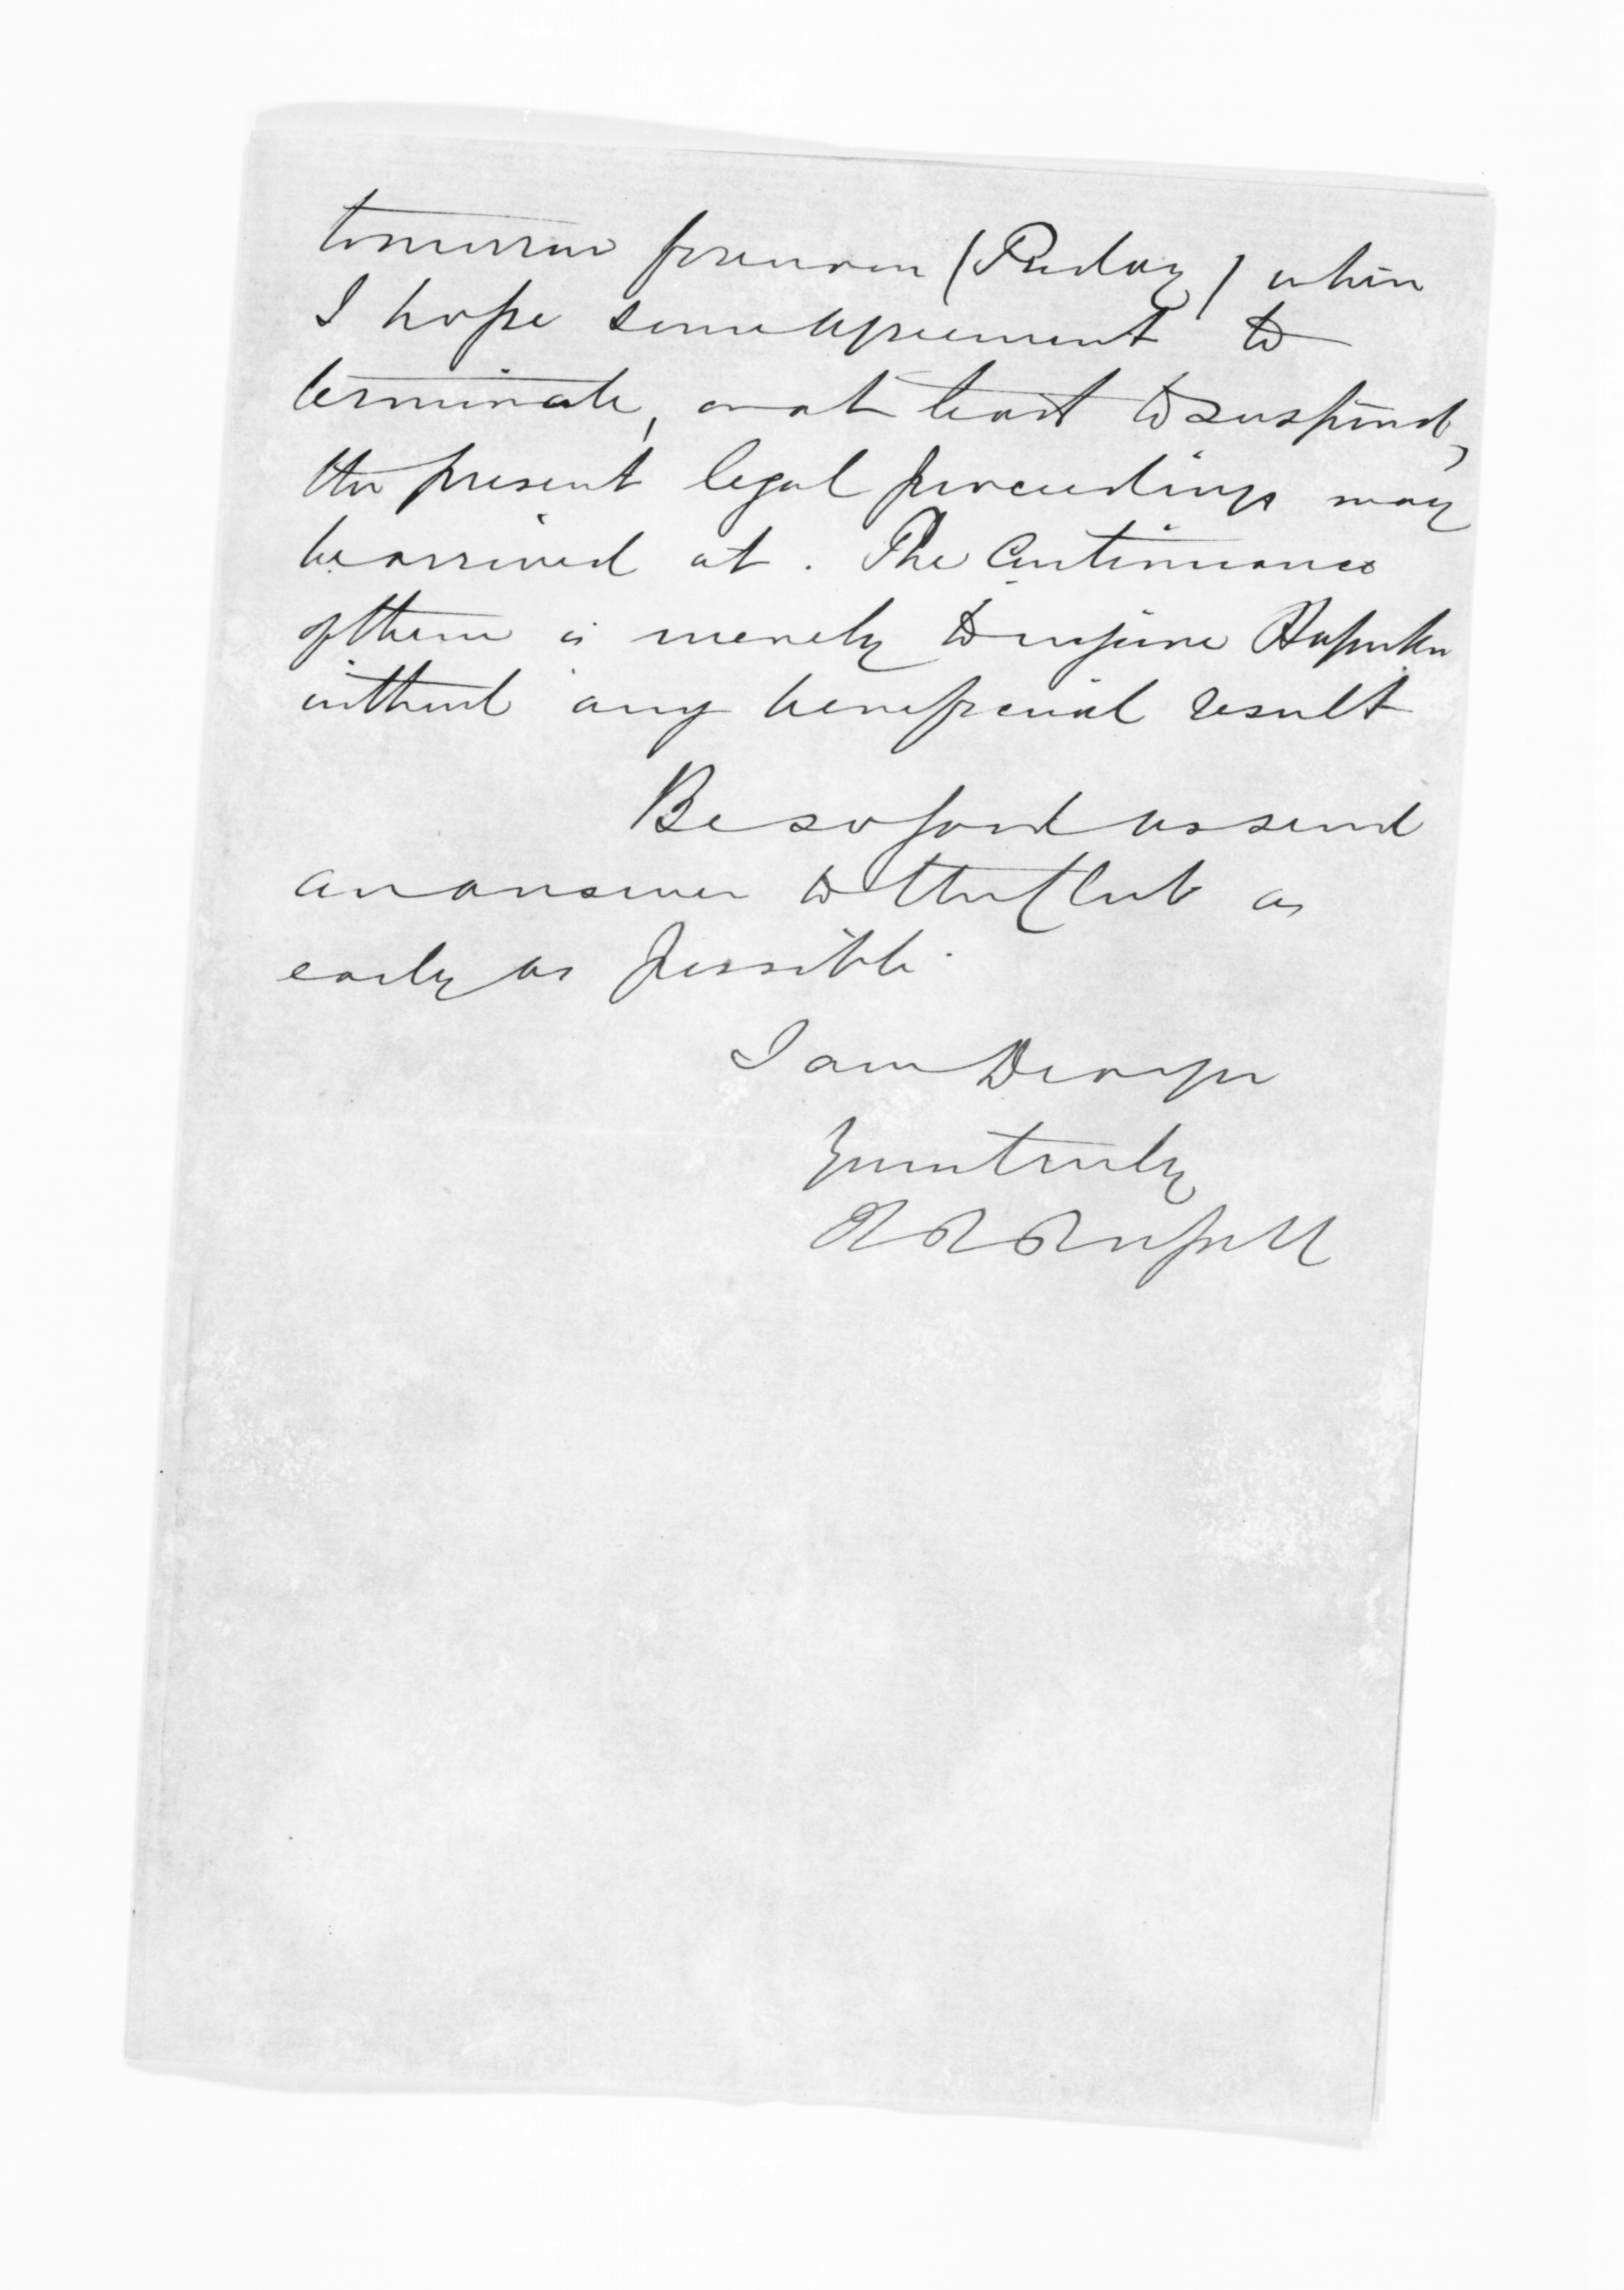 tomorrow forenoon (Friday) when
I hope some agreement to
terminate, or at least to suspend,
the present legal proceedings may
be arrived at. The Continuance
of them is merely to injure Hapuku
without any beneficial result
Be so good as send
an answer to the Club as
early as possible.
I am Dear Sir
Yours truly
H R Russell